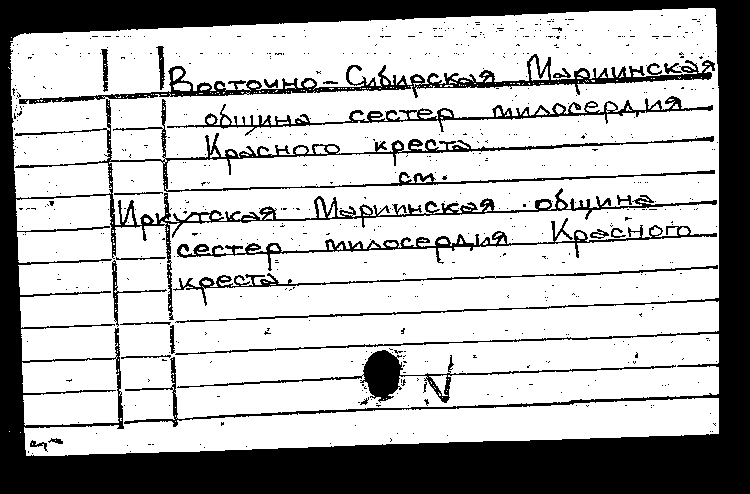 Восточно-Сибирская Мариинская
община сестер милосердия
Красного креста
см.
Иркутская Мариинская община
сестер милосердия Красного
креста.
N